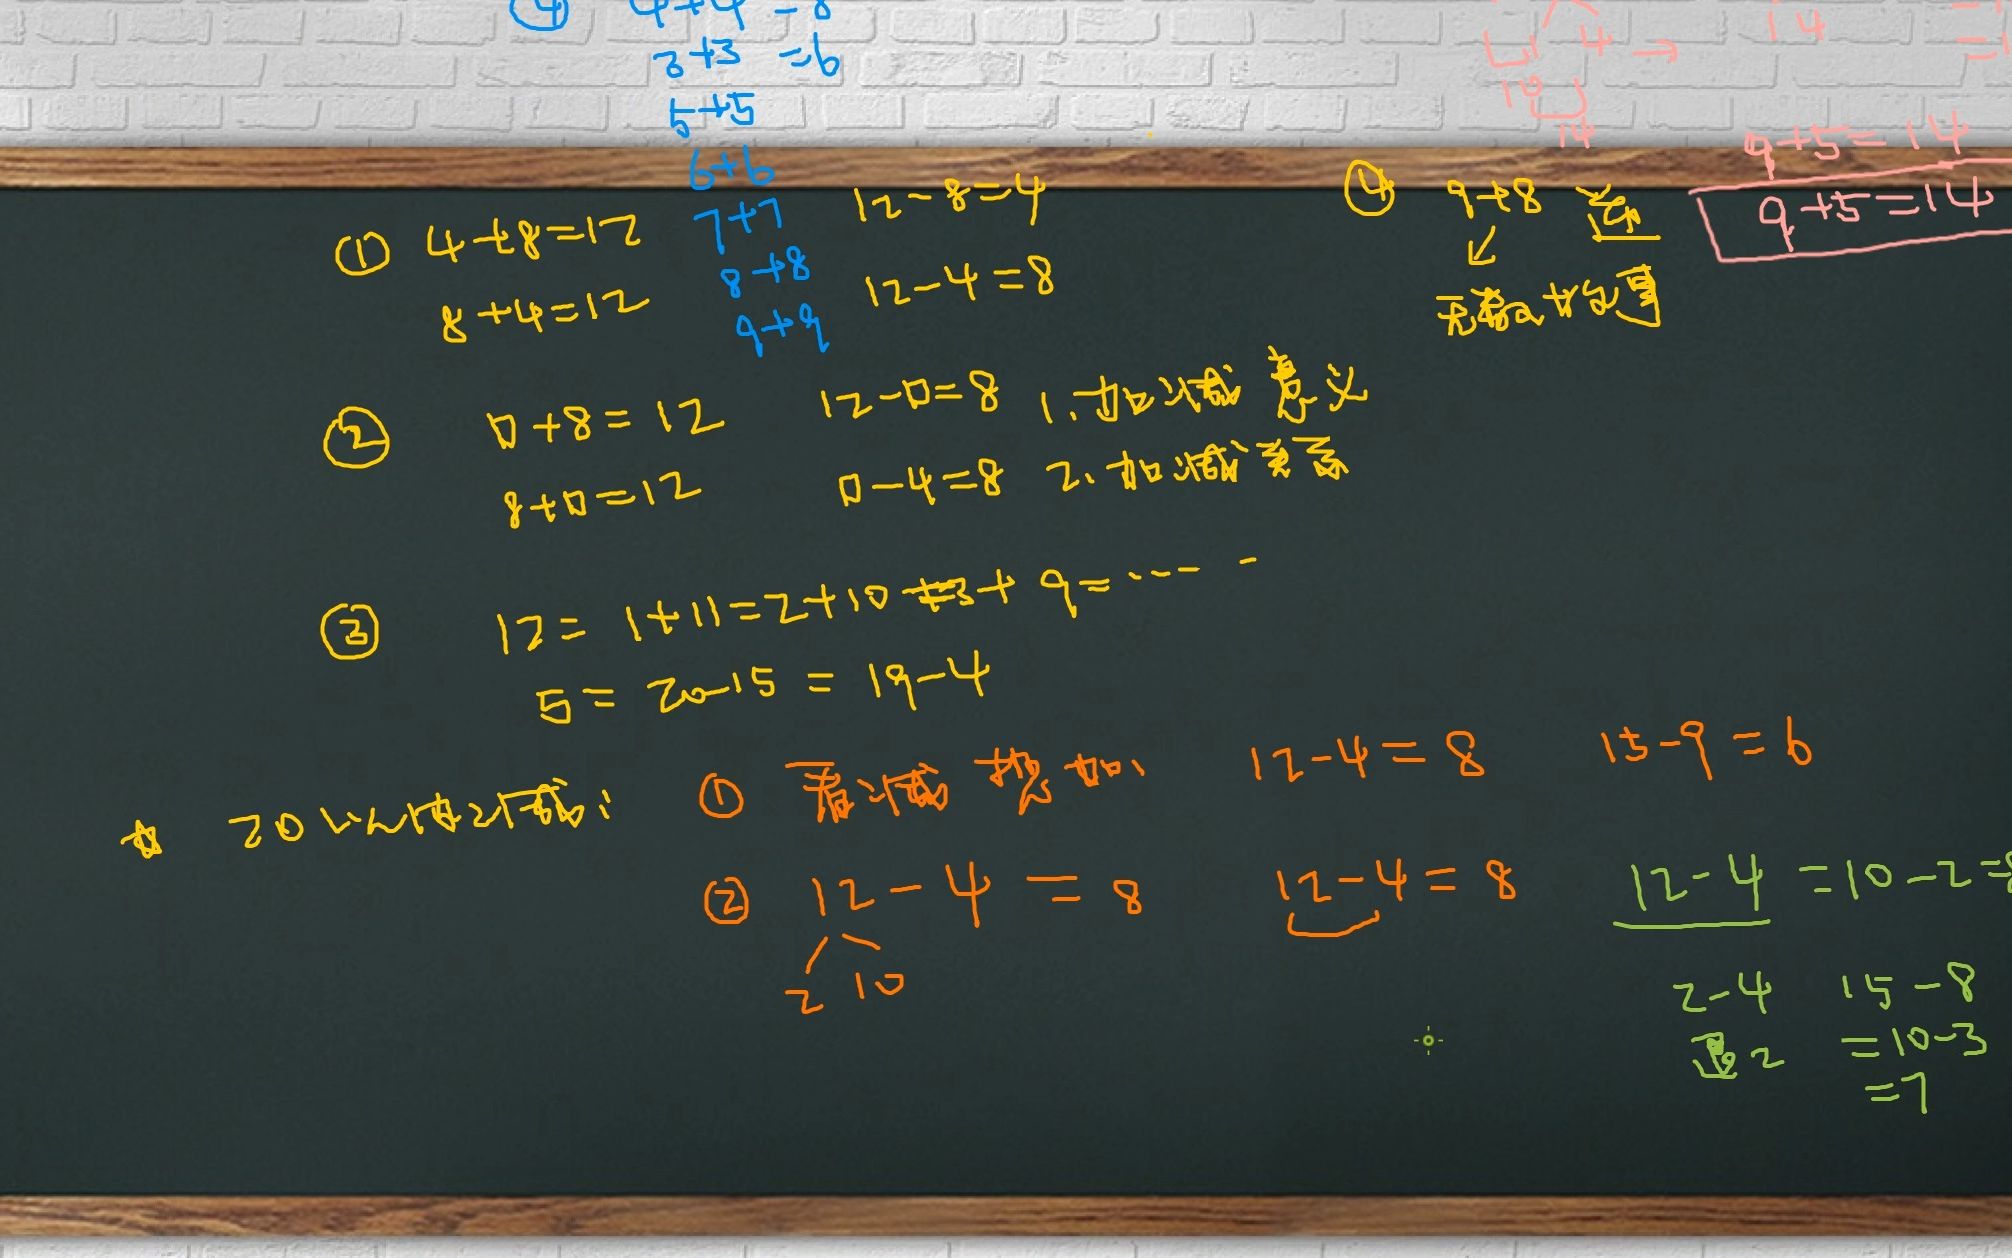 ④ 4+4=8
3+3=6
5+5
6+6
7+7
8+8
9+9
4 → 14
10
14
9+5=14
9+5=14
① 4+8=12
8+4=12
12-8=4
12-4=8
④ 9+8
② □+8=12
8+□=12
12-□=8
□-4=8
1.加减意义
2.加减关系
③ 12=1+11=2+10=3+9=……
5=20-15=19-4
☆ 20以内减:
① 看减想加、 12-4=8 15-9=6
② 12-4=8
2 10
12-4=8
12-4=10-2=8
2-4
退2
15-8
=10-3
=7